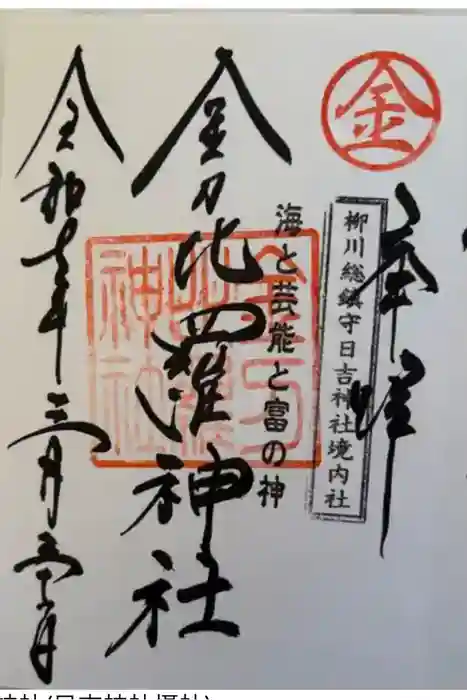 金
奉拝
柳川総鎮守日吉神社境内社
海と芸能と富の神
金刀比羅神社
金刀
比羅
神社
令和 年三月 日